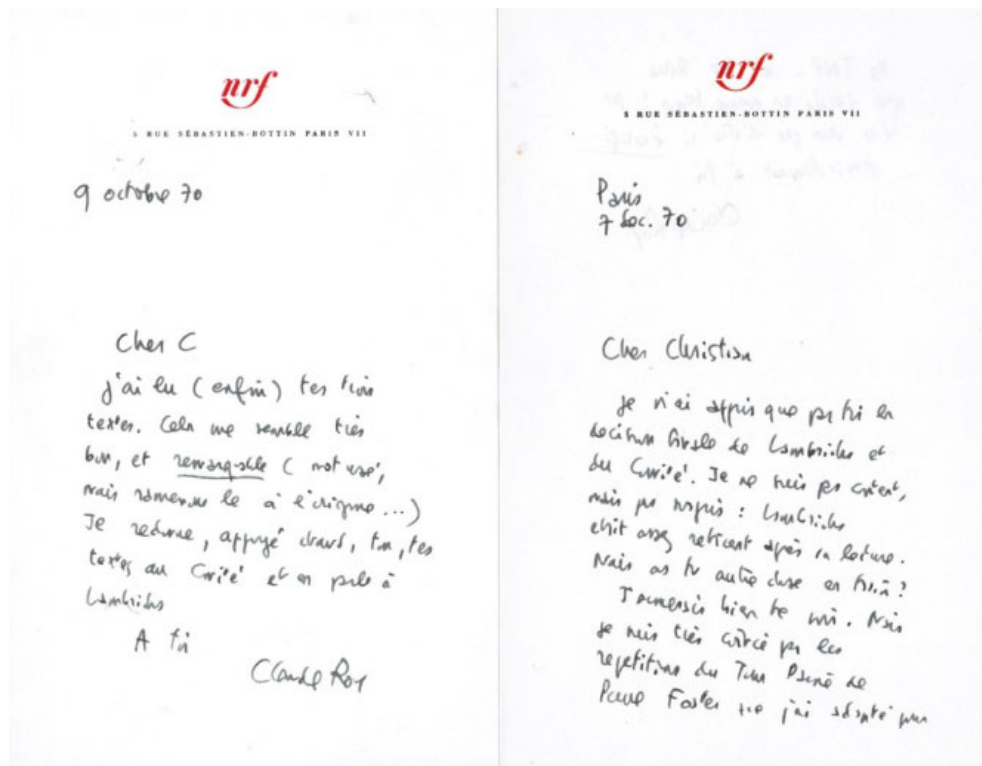 nrf
5 RUE SÉBASTIEN-BOTTIN PARIS VII
9 octobre 70
Cher C
j'ai lu (enfin) tes trois
textes. Cela me semble très
bon, et remarquable (mot usé,
mais ramenons le à l'origine...)
Je redonne, appuyé chaud, ton, tes
textes au Comité et en parle à
Lambrichs
A toi
Claude Roy
nrf
5 RUE SÉBASTIEN-BOTTIN PARIS VII
Paris
7 Dec. 70
Cher Christian
Je n'ai appris que par toi la
décision finale de Lambrichs et
du Comité. Je ne suis pas content,
mais pas surpris : Lambrichs
était assez réticent après sa lecture.
Mais as tu autre chose en train ?
J'aimerais bien te voir. Mais
je suis très coincé par les
repetitions du Tom Paine de
Paul Foster que j'ai adapté pour